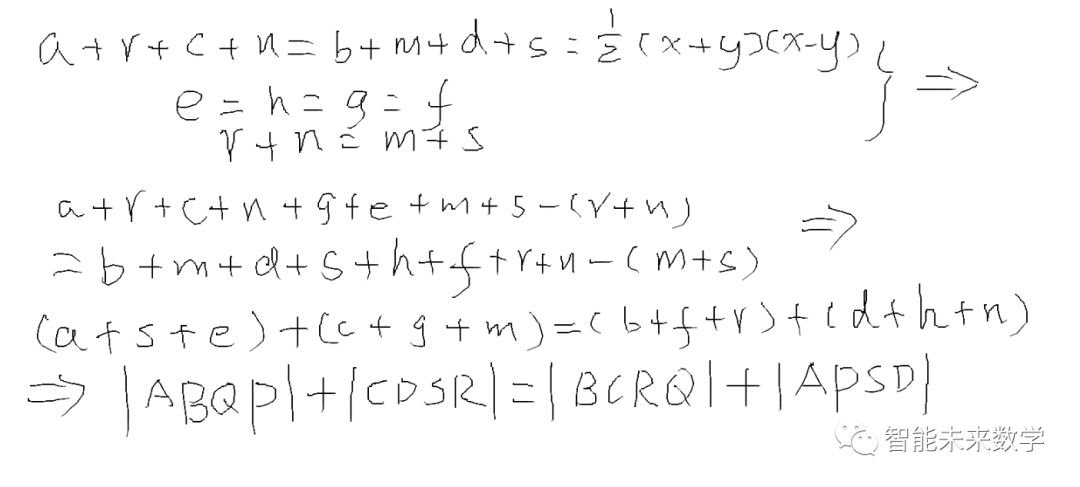 a+r+c+n=b+m+d+s=½(x+y)(x-y)
e=h=g=f
r+n=m+s
} ⇒
a+r+c+n+g+e+m+s-(r+n)
=b+m+d+s+h+f+r+n-(m+s)
⇒
(a+s+e)+(c+g+m)=(b+f+r)+(d+h+n)
⇒|ABQP|+|CDSR|=|BCRQ|+|APSD|
智能未来数学